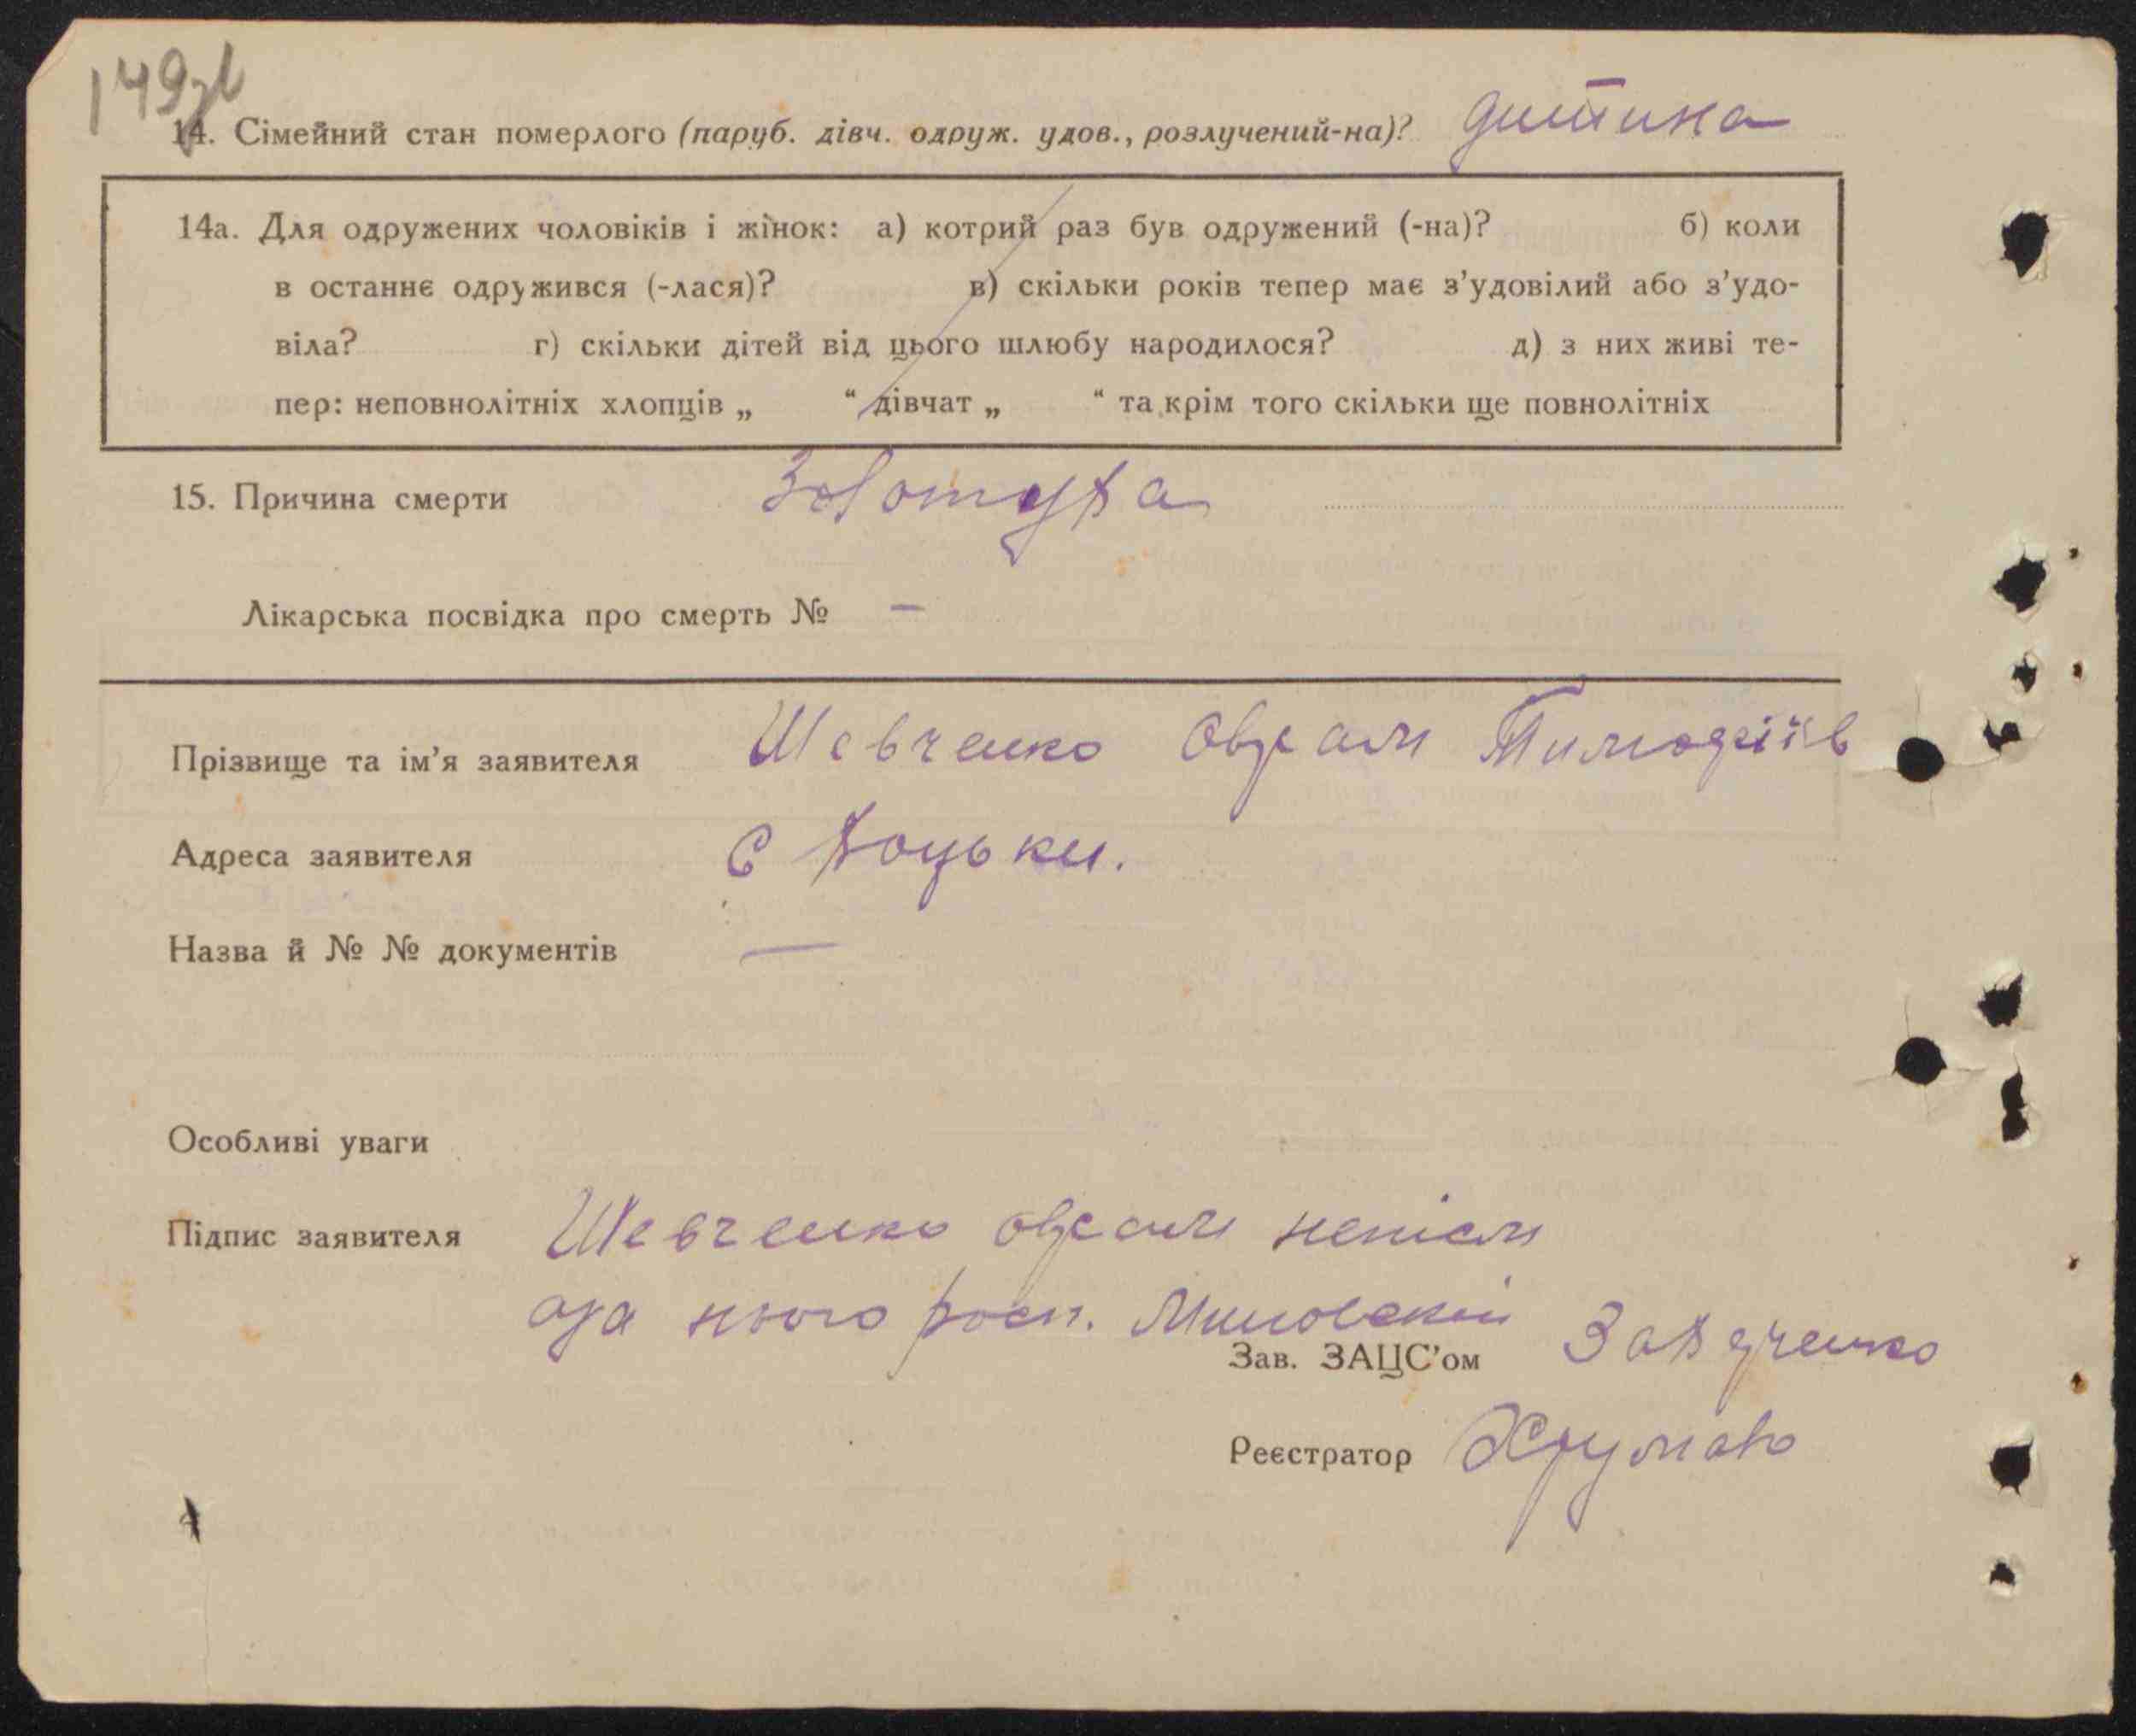 149зв
14. Сімейний стан померлого (паруб. дівч. одруж. удов., розлучений-на)? дитина
14а. Для одружених чоловіків і жінок: а) котрий раз був одружений (-на)? б) коли
в останнє одружився (-лася)? в) скільки років тепер має з’удовілий або з’удо-
віла? г) скільки дітей від цього шлюбу народилося? д) з них живі те-
пер: неповнолітніх хлопців „ “ дівчат „ “ та крім того скільки ще повнолітніх
15. Причина смерти Золотуха
Лікарська посвідка про смерть № —
Прізвище та ім’я заявителя Шевченко Оврам Тимофіїв
Адреса заявителя с Яоцьки.
Назва й № № документів —
Особливі уваги
Підпис заявителя Шевченко оврам непісм
а за нього росп.
Зав. ЗАЦС’ом
Реєстратор